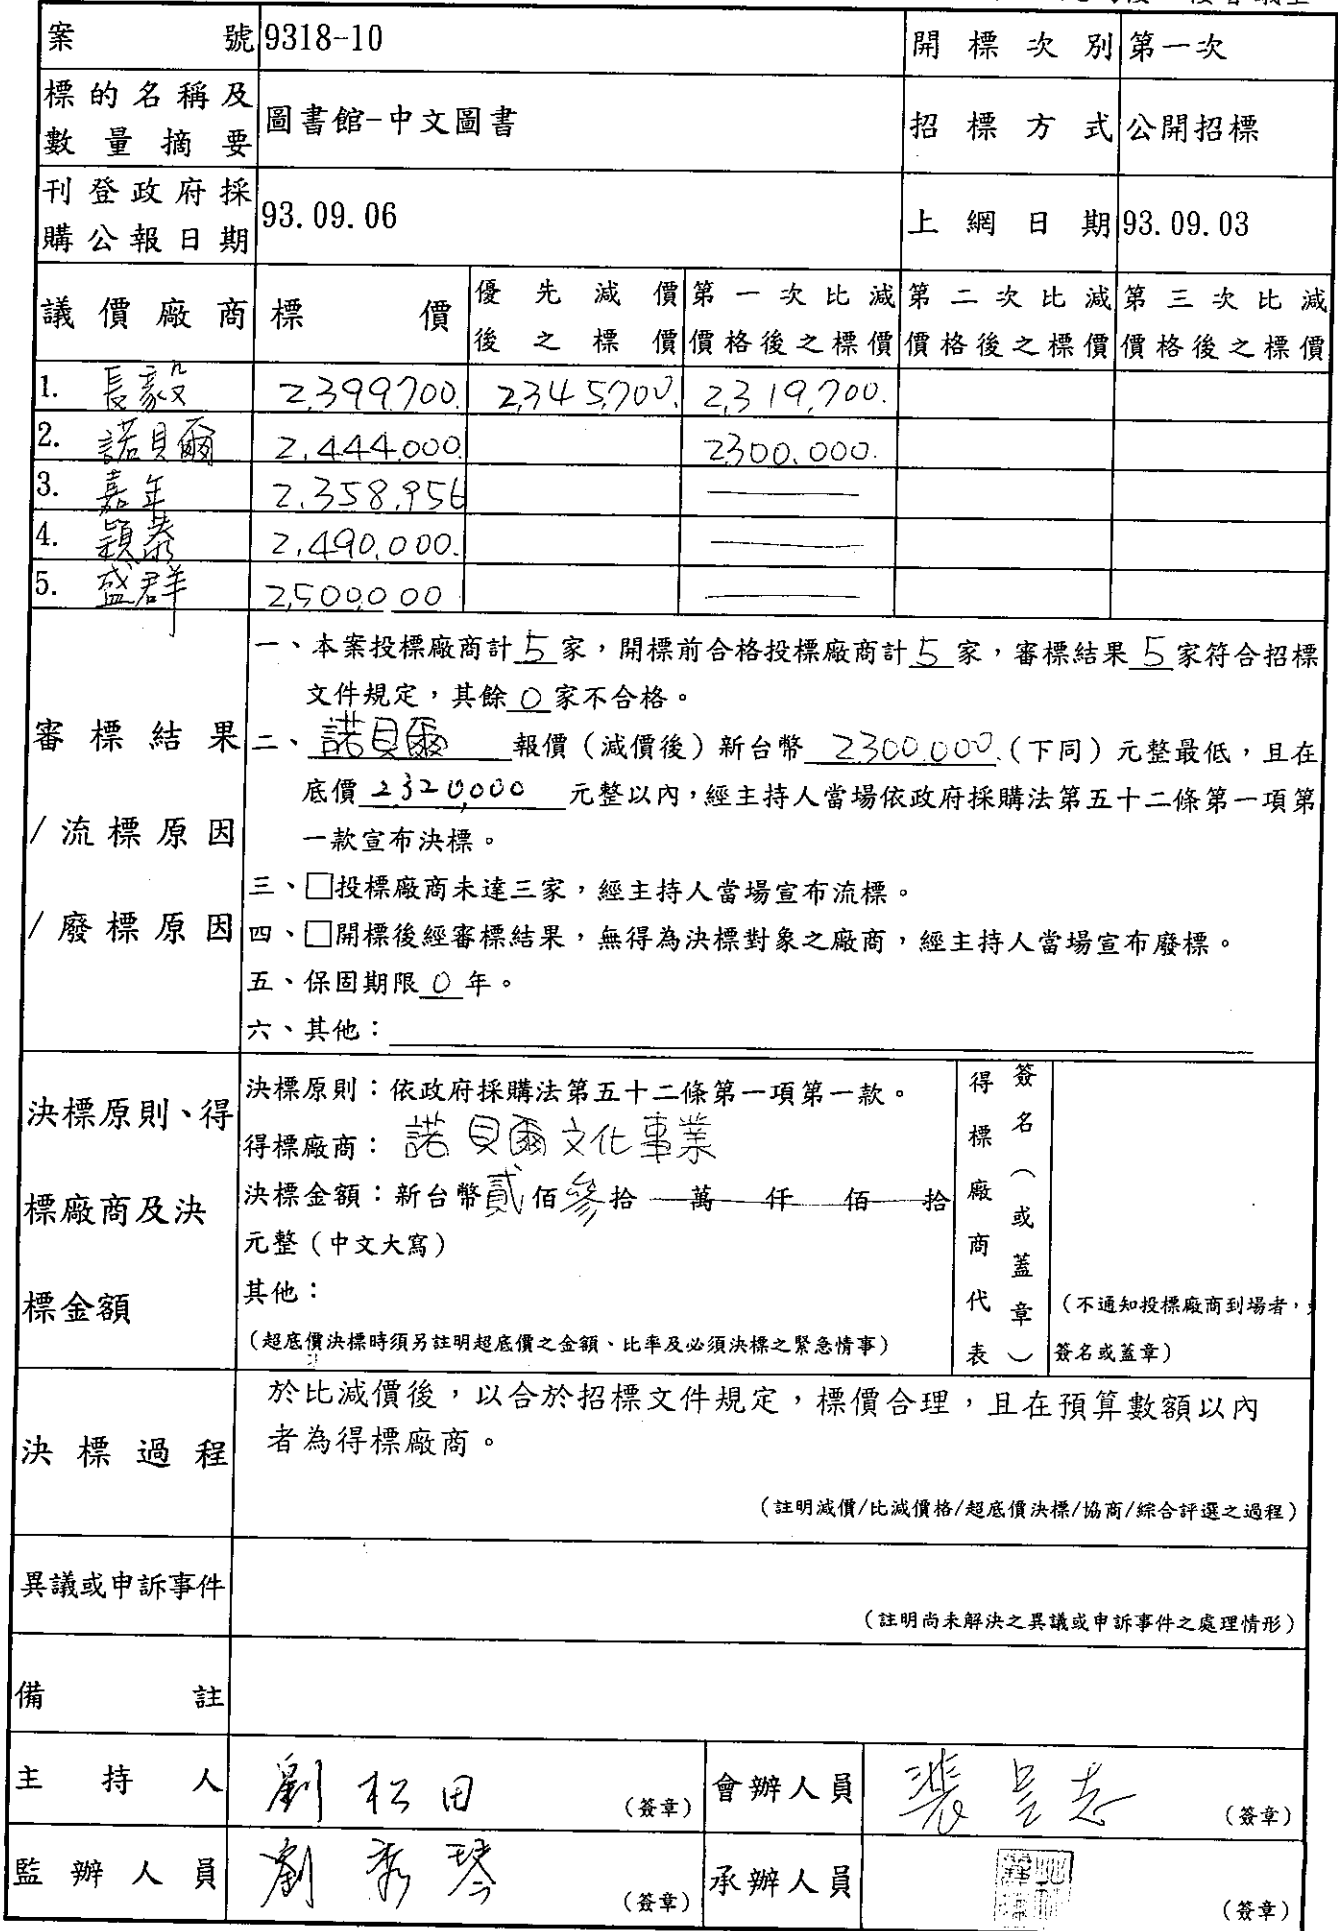 案號 9318-10 開標次別 第一次
標的名稱及數量摘要 圖書館-中文圖書 招標方式 公開招標
刊登政府採購公報日期 93.09.06 上網日期 93.09.03
議價廠商 標價 優先減價後之標價 第一次比減價格後之標價 第二次比減價格後之標價 第三次比減價格後之標價
1. 長毅 2,399,700. 2,345,700. 2,319,700.
2. 諾貝爾 2,444,000. 2,300,000.
3. 嘉年 2,358,956
4. 穎泰 2,490,000.
5. 盛群 2,500,000
審標結果
/流標原因
/廢標原因
一、本案投標廠商計5家，開標前合格投標廠商計5家，審標結果5家符合招標
文件規定，其餘0家不合格。
二、諾貝爾報價（減價後）新台幣2,300,000.（下同）元整最低，且在
底價2,320,000元整以內，經主持人當場依政府採購法第五十二條第一項第
一款宣布決標。
三、□投標廠商未達三家，經主持人當場宣布流標。
四、□開標後經審標結果，無得為決標對象之廠商，經主持人當場宣布廢標。
五、保固期限0年。
六、其他：
決標原則、得
標廠商及決
標金額
決標原則：依政府採購法第五十二條第一項第一款。
得標廠商：諾貝爾文化事業
決標金額：新台幣貳佰參拾萬仟佰拾
元整（中文大寫）
其他：
（超底價決標時須另註明超底價之金額、比率及必須決標之緊急情事）
得標廠商代表
簽名（或蓋章）
（不通知投標廠商到場者，
簽名或蓋章）
決標過程
於比減價後，以合於招標文件規定，標價合理，且在預算數額以內
者為得標廠商。
（註明減價/比減價格/超底價決標/協商/綜合評選之過程）
異議或申訴事件
（註明尚未解決之異議或申訴事件之處理情形）
備註
主持人 劉松田 （簽章） 會辦人員 （簽章）
監辦人員 劉秀琴 （簽章） 承辦人員 （簽章）